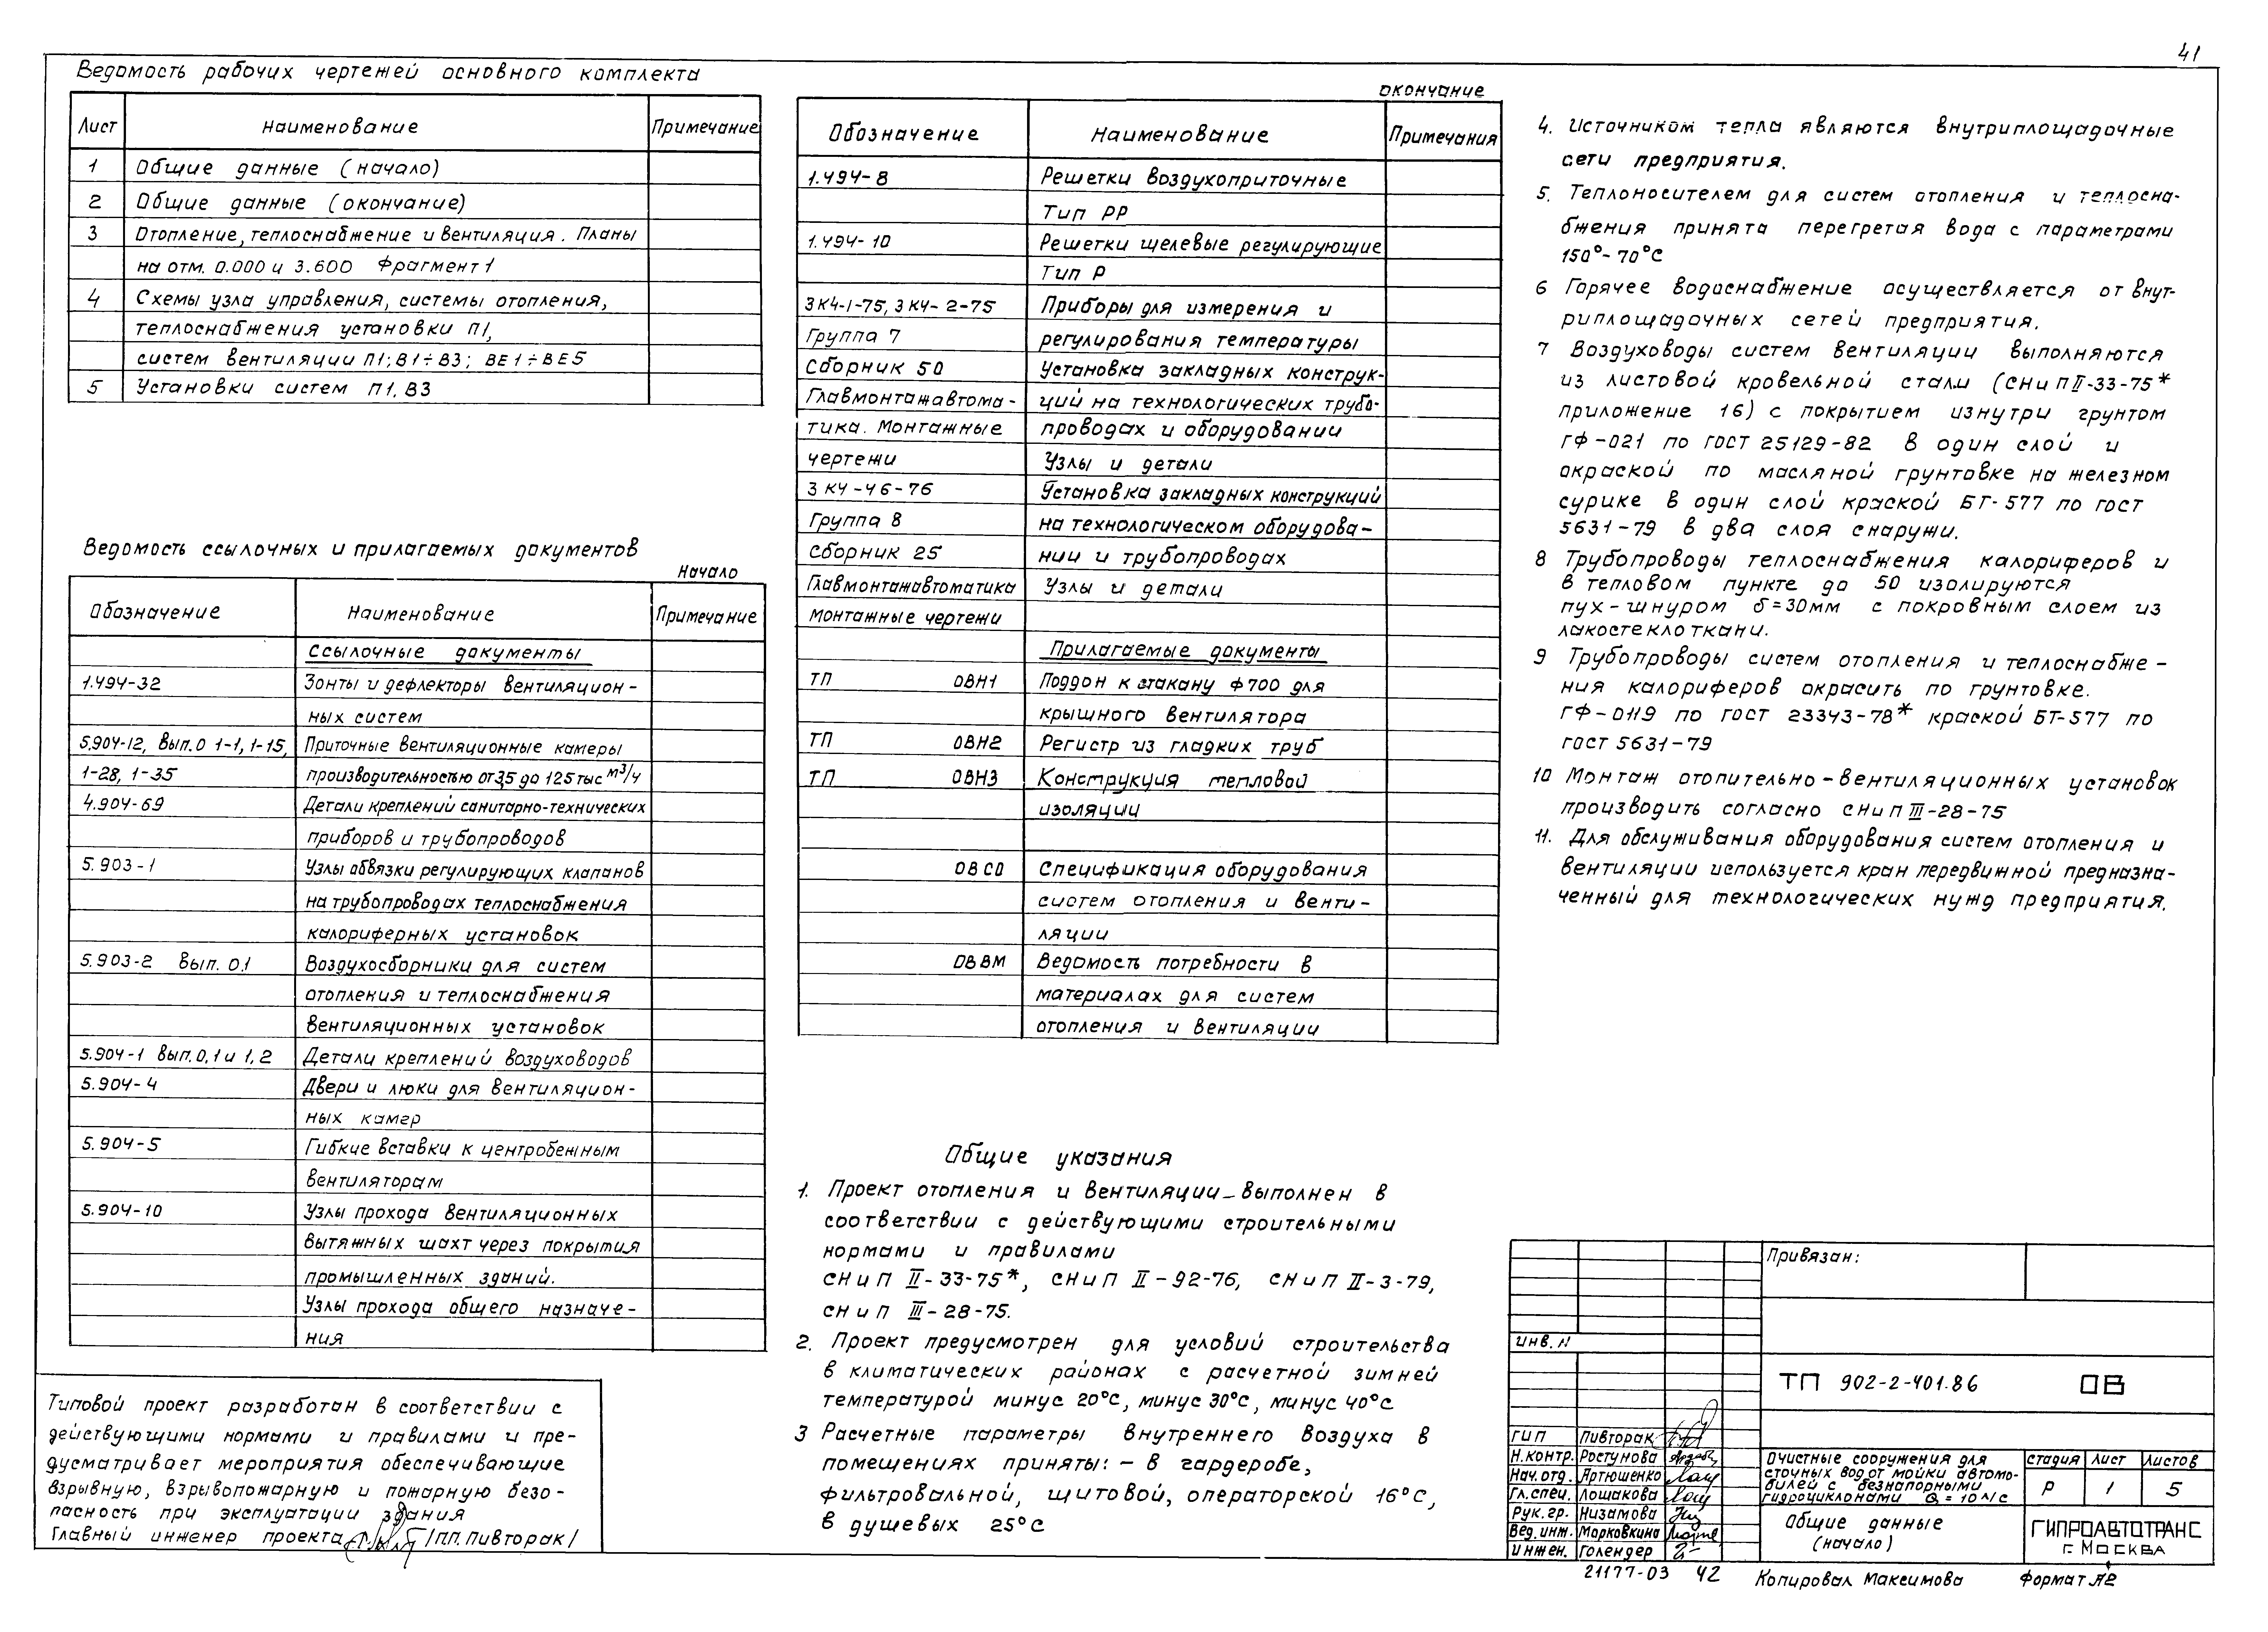 41
Ведомость рабочих чертежей основного комплекта
Лист Наименование Примечание
1 Общие данные (начало)
2 Общие данные (окончание)
3 Отопление, теплоснабжение и вентиляция. Планы
на отм. 0.000 и 3.600 Фрагмент 1
4 Схемы узла управления, системы отопления,
теплоснабжения установки П1,
систем вентиляции П1; В1÷В3; ВЕ1÷ВЕ5
5 Установки систем П1, В3
Ведомость ссылочных и прилагаемых документов
Начало
Обозначение Наименование Примечание
Ссылочные документы
1.494-32 Зонты и дефлекторы вентиляцион-
ных систем
5.904-12, вып. 0 1-1, 1-15, Приточные вентиляционные камеры
1-28, 1-35 производительностью от 3,5 до 125 тыс м³/ч
4.904-69 Детали креплений санитарно-технических
приборов и трубопроводов
5.903-1 Узлы обвязки регулирующих клапанов
на трубопроводах теплоснабжения
калориферных установок
5.903-2 Вып. 0.1 Воздухосборники для систем
отопления и теплоснабжения
вентиляционных установок
5.904-1 Вып. 0,1 и 1,2 Детали креплений воздуховодов
5.904-4 Двери и люки для вентиляцион-
ных камер
5.904-5 Гибкие вставки к центробежным
вентиляторам
5.904-10 Узлы прохода вентиляционных
вытяжных шахт через покрытия
промышленных зданий.
Узлы прохода общего назначе-
ния
Типовой проект разработан в соответствии с
действующими нормами и правилами и пре-
дусматривает мероприятия обеспечивающие
взрывную, взрывопожарную и пожарную безо-
пасность при эксплуатации здания
Главный инженер проекта /П.П. Пивторак/
окончание
Обозначение Наименование Примечания
1.494-8 Решетки воздухоприточные
Тип РР
1.494-10 Решетки щелевые регулирующие
Тип Р
3К4-1-75, 3К4-2-75 Приборы для измерения и
Группа 7 регулирования температуры
Сборник 50 Установка закладных конструк-
Главмонтажавтома- ций на технологических трубо-
тика. Монтажные проводах и оборудовании
чертежи Узлы и детали
3К4-46-76 Установка закладных конструкций
Группа 8 на технологическом оборудова-
Сборник 25 нии и трубопроводах
Главмонтажавтоматика Узлы и детали
монтажные чертежи
Прилагаемые документы
ТП ОВН1 Поддон к стакану Ф700 для
крышного вентилятора
ТП ОВН2 Регистр из гладких труб
ТП ОВН3 Конструкция тепловой
изоляции
ОВСО Спецификация оборудования
систем отопления и венти-
ляции
ОВВМ Ведомость потребности в
материалах для систем
отопления и вентиляции
Общие указания
1. Проект отопления и вентиляции выполнен в
соответствии с действующими строительными
нормами и правилами
СНиП II-33-75*, СНиП II-92-76, СНиП II-3-79,
СНиП III-28-75.
2. Проект предусмотрен для условий строительства
в климатических районах с расчетной зимней
температурой минус 20°С, минус 30°С, минус 40°С
3 Расчетные параметры внутреннего воздуха в
помещениях приняты: - в гардеробе,
фильтровальной, щитовой, операторской 16°С,
в душевых 25°С
4. Источником тепла являются внутриплощадочные
сети предприятия.
5. Теплоносителем для систем отопления и теплосна-
бжения принята перегретая вода с параметрами
150°-70°С
6 Горячее водоснабжение осуществляется от внут-
риплощадочных сетей предприятия.
7 Воздуховоды систем вентиляции выполняются
из листовой кровельной стали (СНиП II-33-75*
приложение 16) с покрытием изнутри грунтом
ГФ-021 по ГОСТ 25129-82 в один слой и
окраской по масляной грунтовке на железном
сурике в один слой краской БТ-577 по ГОСТ
5631-79 в два слоя снаружи.
8 Трубопроводы теплоснабжения калориферов и
в тепловом пункте до 50 изолируются
пух-шнуром δ=30мм с покровным слоем из
лакостеклоткани.
9 Трубопроводы систем отопления и теплоснабже-
ния калориферов окрасить по грунтовке.
ГФ-0119 по ГОСТ 23343-78* краской БТ-577 по
ГОСТ 5631-79
10 Монтаж отопительно-вентиляционных установок
производить согласно СНиП III-28-75
11. Для обслуживания оборудования систем отопления и
вентиляции используется кран передвижной предназна-
ченный для технологических нужд предприятия.
Привязан:
инв. N
ТП 902-2-401.86 ОВ
ГИП Пивторак
Н.контр. Ростунова
Нач.отд. Артюшенко
Гл.спец. Лощакова
Рук. гр. Низамова
Вед. инж. Морковкина
Инжен. Голендер
Очистные сооружения для
сточных вод от мойки автомо-
билей с безнапорными
гидроциклонами Q = 10 л/с
стадия Лист Листов
Р 1 5
Общие данные
(начало)
ГИПРОАВТОТРАНС
г. МОСКВА
21177-03 42 Копировал Максимова Формат А2